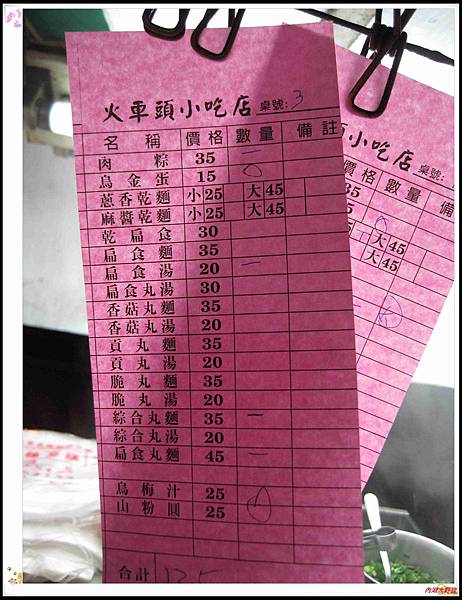 火車頭小吃店 桌號: 3
名稱 價格 數量 備註
肉粽 35 一
烏金蛋 15
蔥香乾麵 小25 大45
麻醬乾麵 小25 大45
乾扁食 30
扁食麵 35
扁食湯 20 一
扁食丸湯 30
香菇丸麵 35
香菇丸湯 20
貢丸麵 35
貢丸湯 20
脆丸麵 35
脆丸湯 20
綜合丸麵 35 一
綜合丸湯 20
扁食丸麵 45 一
烏梅汁 25
山粉圓 25
合計 125
頭小吃店 桌號:
價格 數量 備
35
大45
大45